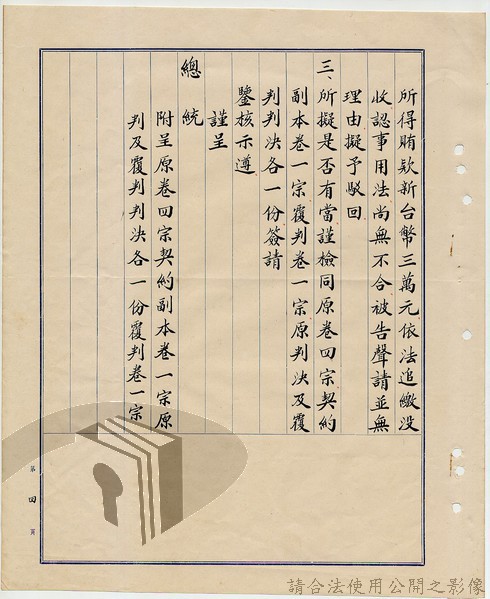 所得賄欵新台幣三萬元依法追繳没
收認事用法尚無不合被告聲請並無
理由擬予駁回
三、所擬是否有當謹檢同原卷四宗契約
副本卷一宗覆判卷一宗原判決及覆
判判決各一份簽請
鑒核示遵
謹呈
總統
附呈原卷四宗契約副本卷一宗原
判及覆判判決各一份覆判卷一宗
第四頁
請合法使用公開之影像